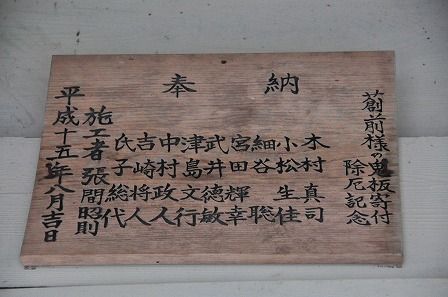 奉納
蒼前様の鬼板寄付
除厄記念
木村真司
小松生佳
細谷聡
宮田輝幸
武井徳敏
津島文行
中村政人
吉崎将人
氏子総代
施工者張間昭則
平成十五年八月吉日